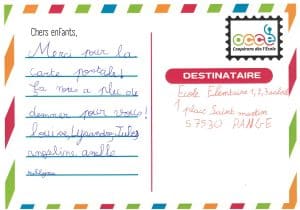 Chers enfants,
Merci pour la
carte postale!
Ça nous a plu de
donner pour vous!
Louise, Lysandro, Jules
angeline, axelle
occe
Coopérons dès l'École
DESTINATAIRE
Ecole Elémentaire 1, 2, 3 soleil
1 place Saint martin
57530 PANGE